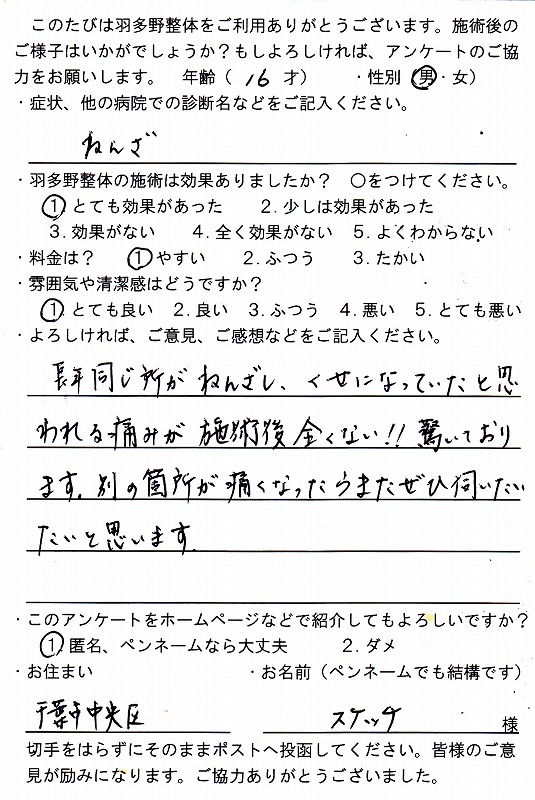 このたびは羽多野整体をご利用ありがとうございます。施術後の
ご様子はいかがでしょうか？もしよろしければ、アンケートのご協
力をお願いします。　年齢（ 16 才）　・性別（男・女）
・症状、他の病院での診断名などをご記入ください。
ねんざ
・羽多野整体の施術は効果ありましたか？　〇をつけてください。
1. とても効果があった　2. 少しは効果があった
3. 効果がない　4. 全く効果がない　5. よくわからない
・料金は？　1. やすい　2. ふつう　3. たかい
・雰囲気や清潔感はどうですか？
1. とても良い　2. 良い　3. ふつう　4. 悪い　5. とても悪い
・よろしければ、ご意見、ご感想などをご記入ください。
長年同じ所がねんざし、くせになっていたと思
われる痛みが施術後全くない!!驚いており
ます。別の箇所が痛くなったらまたぜひ伺いたい
たいと思います。
・このアンケートをホームページなどで紹介してもよろしいですか？
1. 匿名、ペンネームなら大丈夫　2. ダメ
・お住まい　・お名前（ペンネームでも結構です）
千葉市中央区　スケッチ　様
切手をはらずにそのままポストへ投函してください。皆様のご意
見が励みになります。ご協力ありがとうございました。